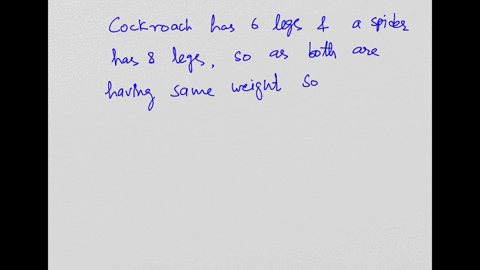 Cockroach has 6 legs & a spider
has 8 legs, so as both are
having same weight so